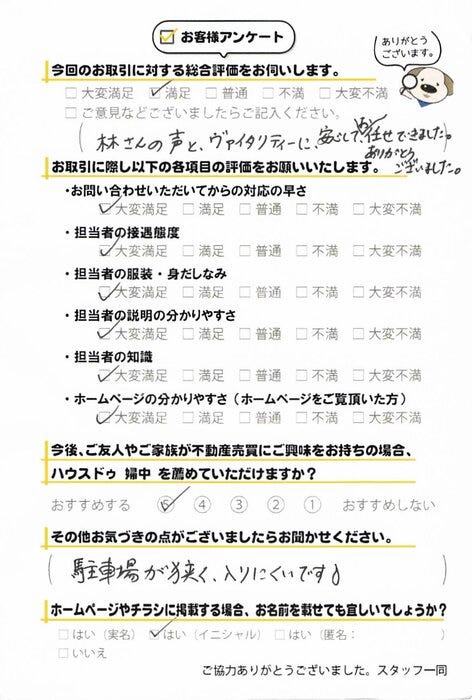 お客様アンケート
ありがとう
ございます。
今回のお取引に対する総合評価をお伺いします。
□大変満足 ☑満足 □普通 □不満 □大変不満
□ご意見などございましたらご記入ください。
(林さんの声と、ヴァイタリティーに、安心して、任せできました。
ありがとう
ございました。)
お取引に際し以下の各項目の評価をお願いいたします。
・お問い合わせいただいてからの対応の早さ
☑大変満足 □満足 □普通 □不満 □大変不満
・担当者の接遇態度
☑大変満足 □満足 □普通 □不満 □大変不満
・担当者の服装・身だしなみ
☑大変満足 □満足 □普通 □不満 □大変不満
・担当者の説明の分かりやすさ
☑大変満足 □満足 □普通 □不満 □大変不満
・担当者の知識
☑大変満足 □満足 □普通 □不満 □大変不満
・ホームページの分かりやすさ(ホームページをご覧頂いた方)
☑大変満足 □満足 □普通 □不満 □大変不満
今後、ご友人やご家族が不動産売買にご興味をお持ちの場合、
ハウスドゥ 婦中 を薦めていただけますか?
おすすめする ⑤ ④ ③ ② ① おすすめしない
その他お気づきの点がございましたらお聞かせください。
(駐車場が狭く、入りにくいです)
ホームページやチラシに掲載する場合、お名前を載せても宜しいでしょうか?
□はい(実名) ☑はい(イニシャル) □はい(匿名: )
□いいえ
ご協力ありがとうございました。スタッフ一同